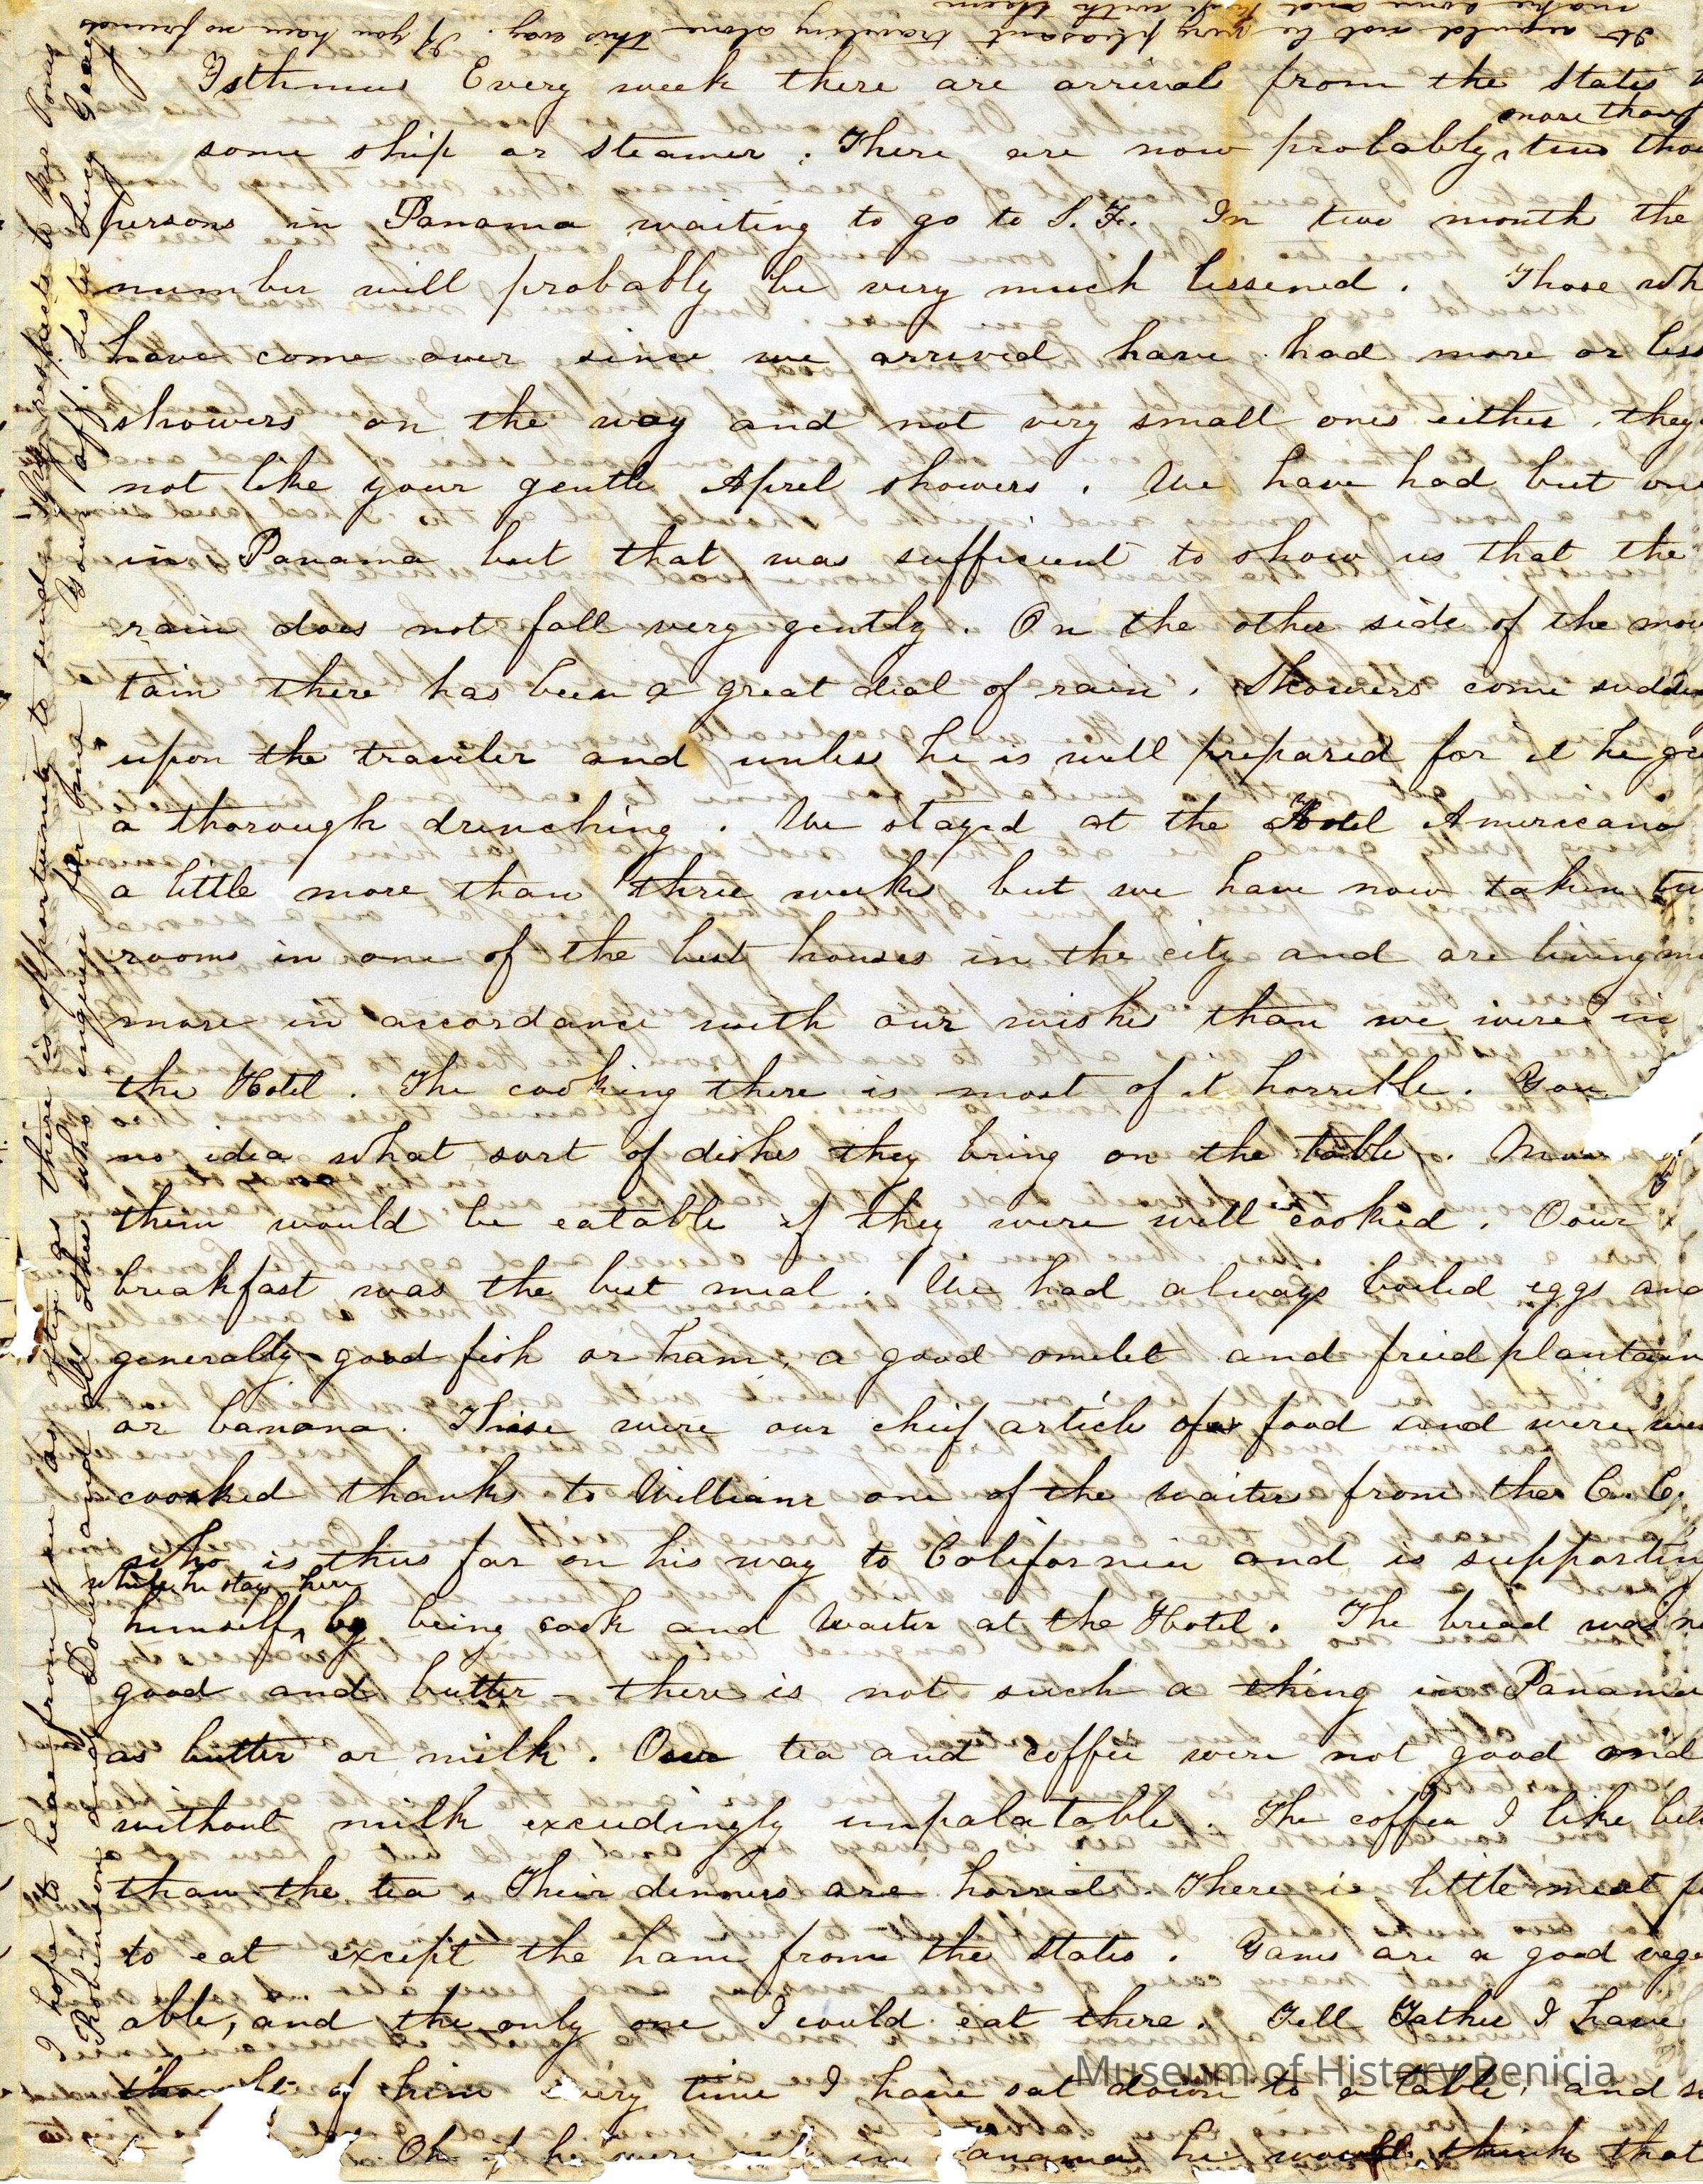 It would not be very pleasant traveling alone this way. If you have no friends
make some and go with them
Isthmus Every week there are arrivals from the States
more than
some ship or steamer. There are now probably, two thou
persons in Panama waiting to go to S. F. In two month the
number will probably be very much lessened. Those wh
have come over since we arrived have had more or less
showers on the way and not very small ones either, they
not like your gentle Aprel showers. We have had but one
in Panama but that was sufficient to show us that the
rain does not fall very gently. On the other side of the moun
tain there has been a great deal of rain. Showers come sudden
upon the traveler and unless he is well prepared for it he ge
a thorough drenching. We stayed at the Hotel Americano
a little more than three weeks but we have now taken tw
rooms in one of the best houses in the city and are living mu
more in accordance with our wishes than we were in
the Hotel. The cooking there is most of it horrible. You
no idea what sort of dishes they bring on the table. Many of
them would be eatable if they were well cooked. Oour
breakfast was the best meal. We had always boiled eggs and
generally good fish or ham, a good omelet and fried plantain
or banana. These were our chief article of food and were we
cooked thanks to William one of the waiters from the C. C.
who is thus far on his way to California and is supportin
while he stays here
himself, by being cook and waiter at the Hotel. The bread was n
good and butter - there is not such a thing in Panama
as butter or milk. Our tea and coffee were not good and
without milk exceedingly unpalatable. The coffee I like bett
than the tea. Their dinners are horrid. There is little meat f
to eat except the ham from the States. Yams are a good vege
able, and the only one I could eat there. Tell Father I have
thought of him every time I have sat down to a table, and s
Oh if he were only in Panama he would think that
I hope to hear from you as often as there is opportunity to send. My respects to
Robinson and and all others who inquire for me Your aff. sister Lucy Gray
Museum of History Benicia